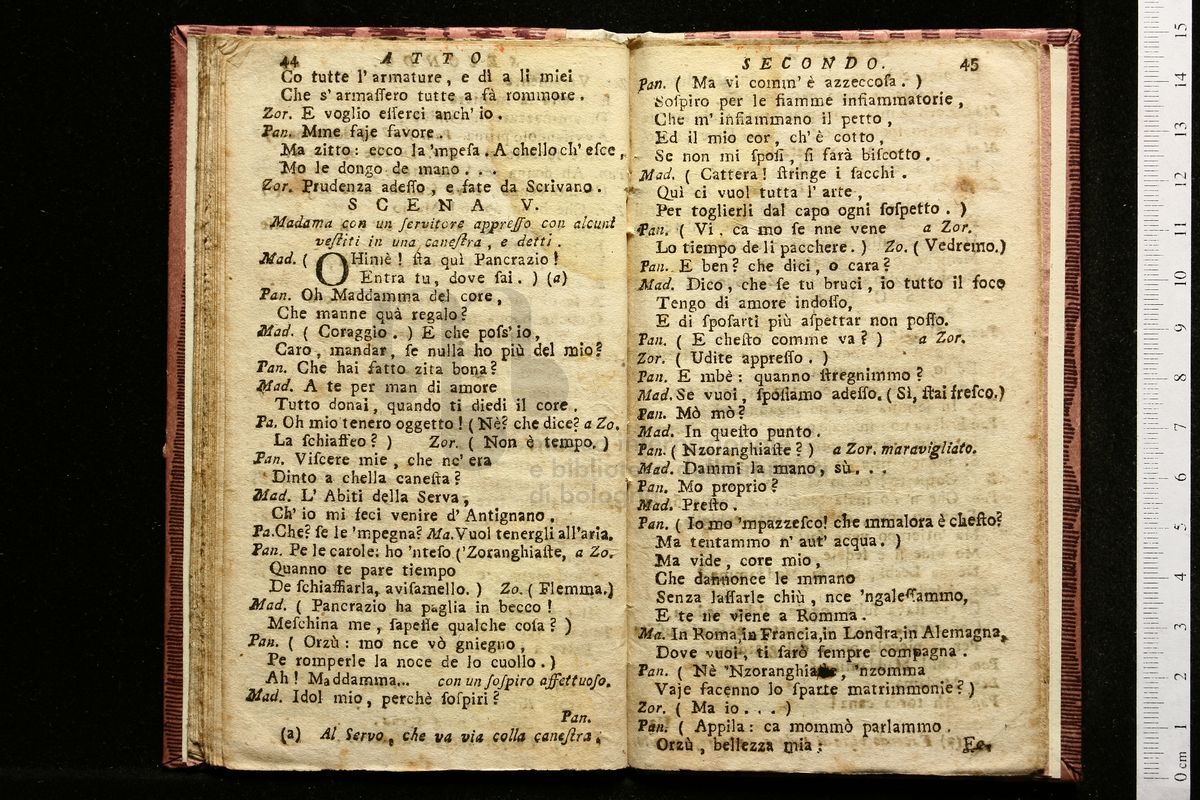 44 ATTO
Co tutte l'armature, e dì a li miei
Che s'armaſſero tutte a fà rommore.
Zor. E voglio eſſerci anch'io.
Pan. Mme faje favore.
Ma zitto: ecco la 'mpeſa. A chello ch'eſce,
Mo le dongo de mano...
Zor. Prudenza adeſſo, e fate da Scrivano.
SCENA V.
Madama con un ſervitore appreſſo con alcuni
veſtiti in una caneſtra, e detti.
Mad. ( OHimè! ſta quì Pancrazio!
Entra tu, dove ſai. ) (a)
Pan. Oh Maddamma del core,
Che manne quà regalo?
Mad. ( Coraggio. ) E che poſs'io,
Caro, mandar, ſe nulla ho più del mio?
Pan. Che hai fatto zita bona?
Mad. A te per man di amore
Tutto donai, quando ti diedi il core.
Pa. Oh mio tenero oggetto! (Nè? che dice? a Zo.
La ſchiaffeo? ) Zor. ( Non è tempo. )
Pan. Viſcere mie, che nc'era
Dinto a chella caneſta?
Mad. L'Abiti della Serva,
Ch'io mi feci venire d'Antignano.
Pa. Che? ſe le 'mpegna? Ma. Vuol tenergli all'aria.
Pan. Pe le carole: ho 'nteſo ('Zoranghiaſte, a Zo.
Quanno te pare tiempo
De ſchiaffiarla, aviſamello. ) Zo. ( Flemma.)
Mad. ( Pancrazio ha paglia in becco!
Meſchina me, ſapeſſe qualche coſa? )
Pan. ( Orzù: mo nce vò gniegno,
Pe romperle la noce de lo cuollo.)
Ah! Maddamma... con un ſoſpiro affettuoſo.
Mad. Idol mio, perchè ſoſpiri?
Pan.
(a) Al Servo, che va via colla caneſtra.
SECONDO. 45
Pan. ( Ma vi comm'è azzeccoſa. )
Soſpiro per le fiamme infiammatorie,
Che m'infiammano il petto,
Ed il mio cor, ch'è cotto,
Se non mi ſpoſi, ſi farà biſcotto.
Mad. ( Cattera! ſtringe i ſacchi.
Quì ci vuol tutta l'arte,
Per toglierli dal capo ogni ſoſpetto. )
Pan. ( Vi. ca mo ſe nne vene a Zor.
Lo tiempo de li pacchere. ) Zo. ( Vedremo.)
Pan. E ben? che dici, o cara?
Mad. Dico, che ſe tu bruci, io tutto il foco
Tengo di amore indoſſo,
E di ſpoſarti più aſpettar non poſſo.
Pan. ( E cheſto comme va? ) a Zor.
Zor. ( Udite appreſſo. )
Pan. E mbè: quanno ſtregnimmo?
Mad. Se vuoi, ſpoſiamo adeſſo. ( Sì, ſtai freſco.)
Pan. Mò mò?
Mad. In queſto punto.
Pan. ( Nzoranghiaſte? ) a Zor. maravigliato.
Mad. Dammi la mano, sù...
Pan. Mo proprio?
Mad. Preſto.
Pan. ( Io mo 'mpazzeſco! che mmalora è cheſto?
Ma tentammo n'aut'acqua. )
Ma vide, core mio,
Che dannonce le mmano
Senza laſſarle chiù, nce 'ngaleſſammo,
E te ne viene a Romma.
Ma. In Roma, in Francia, in Londra, in Alemagna,
Dove vuoi, ti farò ſempre compagna.
Pan. ( Nè 'Nzoranghiaſte, 'nzomma
Vaje facenno lo ſparte matrimmonie? )
Zor. ( Ma io... )
Pan. ( Appila: ca mommò parlammo.
Orzù, bellezza mia;